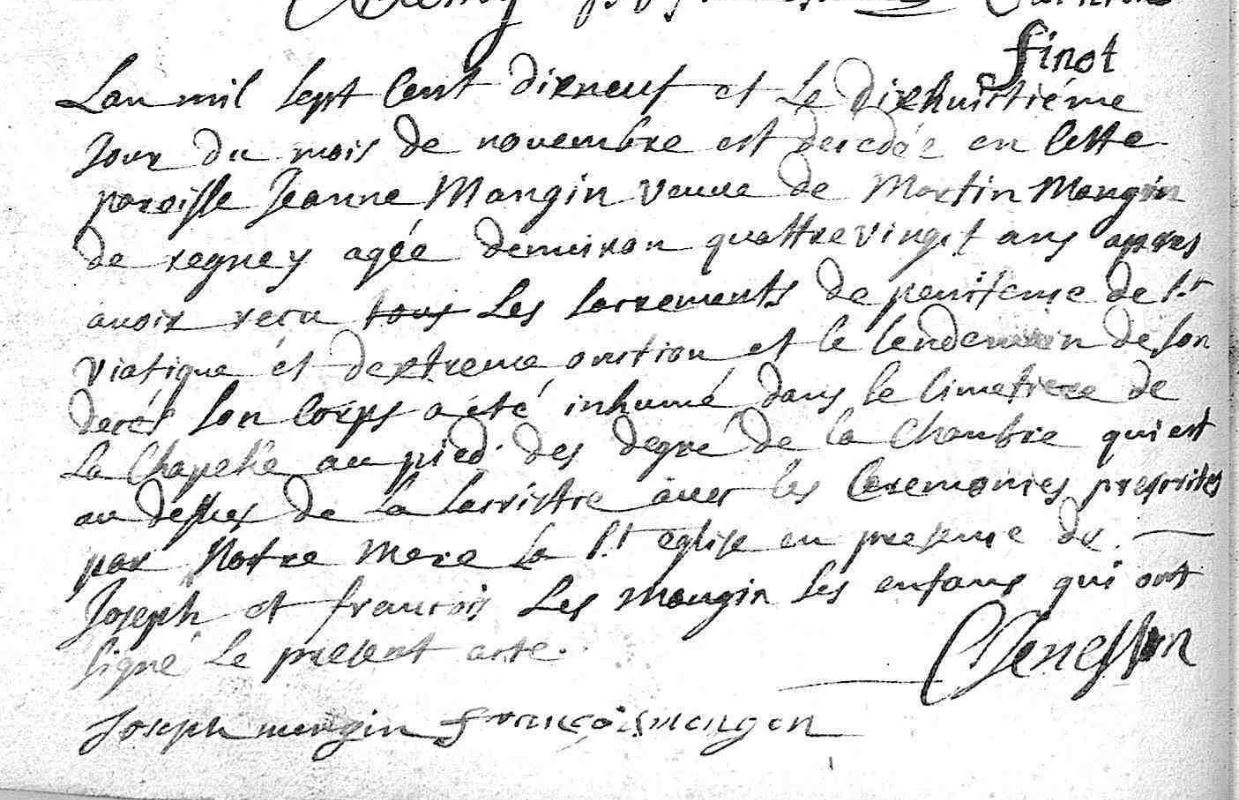 finot
Lan mil sept Cent dixneuf et Le Dixhuictiéme
Jour du mois de novembre est decedée en Cette
paroisse Jeanne Mangin veuve de Martin Mangin
de regney agée denuiron quattrevingt ans appres
auoir recu tous Les sacrements de penitense de st
viatique et dextreme onction et le lendemain de son
decés son Corps a été inhumé dans le Cimetiere de
La Chapelle au pied des degré de la Chambre qui est
au dessus de La sacristie avec les Ceremonies prescrites
par Notre Mere La st eglise en presense de
Joseph et francois Les Mangin ses enfans qui ont
signé Le present acte.
Joseph mengin françois mengen